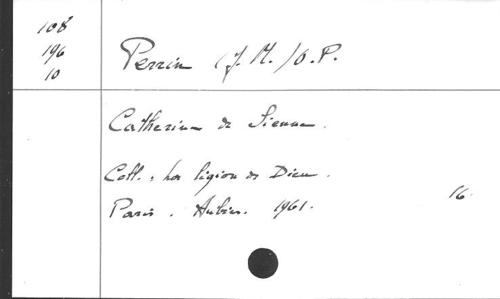 108
196
10
Perrin (J. M.) O.P.
Catherine de Sienne.
Coll. : La légion de Dieu.
Paris. Aubier. 1961.
16